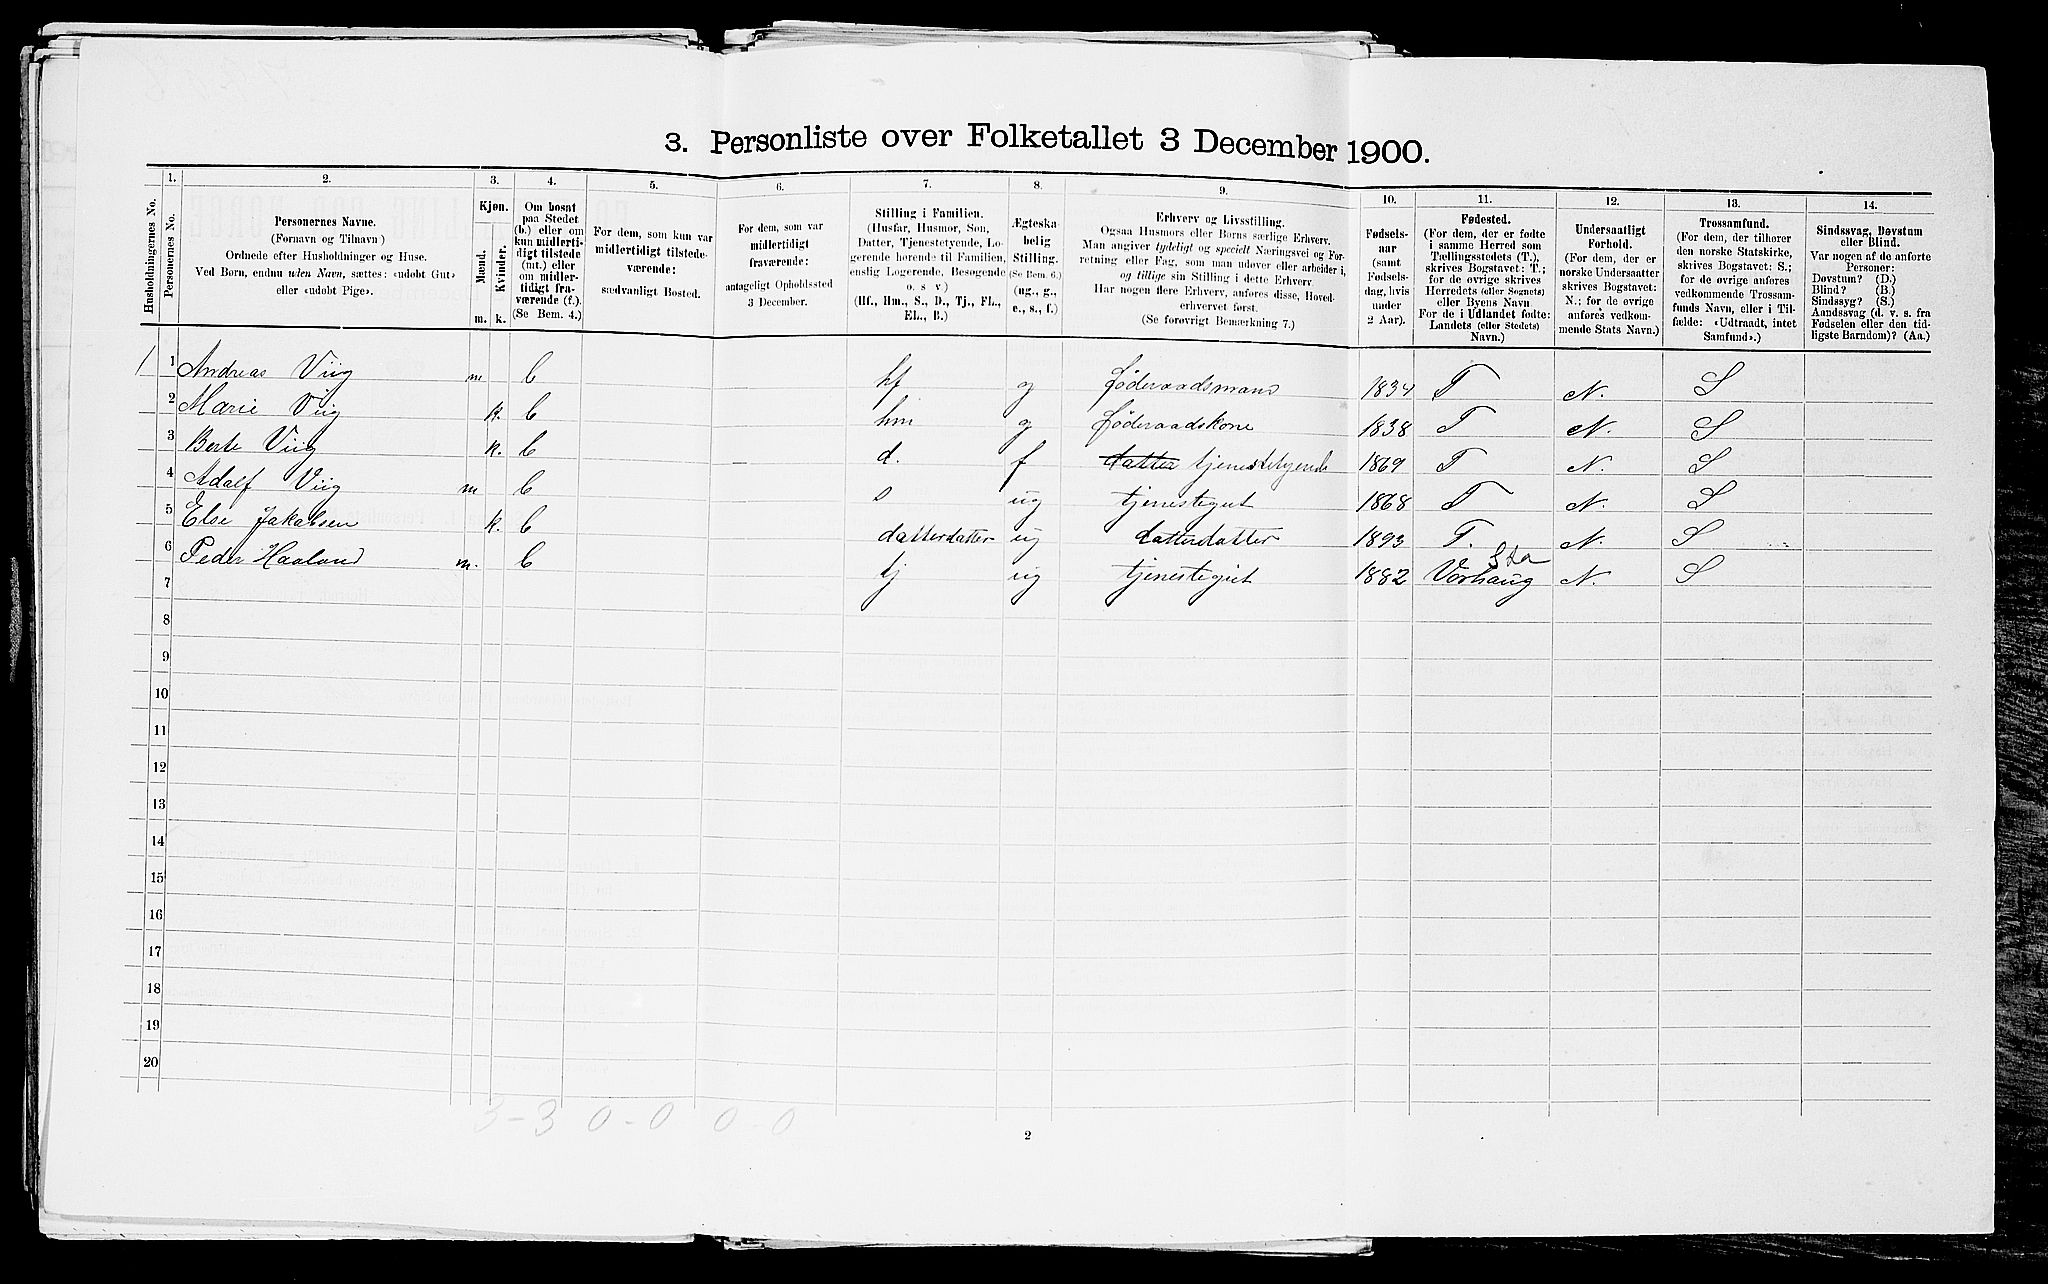 3. Personliste over Folketallet 3 December 1900.
1. 2. 3. 4. 5. 6. 7. 8. 9. 10. 11. 12. 13. 14.
Husholdningernes No.
Personernes No.
Personernes Navne.
(Fornavn og Tilnavn)
Ordnede efter Husholdninger og Huse.
Ved Børn, endnu uden Navn, sættes: «udøbt Gut»
eller «udøbt Pige».
Kjøn.
Mænd.
Kvinder.
m. k.
Om bosat
paa Stedet
(b.) eller om
kun midlerti-
digt tilstede
(mt.) eller
om midler-
tidigt fra-
værende (f.).
(Se Bem. 4.)
For dem, som kun var
midlertidigt tilstede-
værende:
sædvanligt Bosted.
For dem, som var
midlertidigt
fraværende:
antageligt Opholdssted
3 December.
Stilling i Familien.
(Husfar, Husmor, Søn,
Datter, Tjenestetyende, Lo-
gerende hørende til Familien,
enslig Logerende, Besøgende
o. s v.)
(Hf., Hm., S., D., Tj., FL.,
EL., B.)
Ægteska-
belig
Stilling.
(Se Bem. 6.)
(ug., g.,
e., s., f.)
Erhverv og Livsstilling.
Ogsaa Husmors eller Børns særlige Erhverv.
Man angiver tydeligt og specielt Næringsvei og For-
retning eller Fag, som man udøver eller arbeider i,
og tillige sin Stilling i dette Erhverv.
Har nogen flere Erhverv, anføres disse, Hoved-
erhvervet først.
(Se forøvrigt Bemærkning 7.)
Fødsels-
aar
(samt
Fødsels-
dag, hvis
under
2 Aar).
Fødested.
(For dem, der er fødte
i samme Herred som
Tællingsstedets (T.),
skrives Bogstavet: T.;
for de øvrige skrives
Herredets (eller Sognets)
eller Byens Navn
For de i Udlandet fødte:
Landets (eller Stedets)
Navn.)
Undersaatligt
Forhold.
(For dem, der er
norske Undersaatter
skrives Bogstavet:
N.; for de øvrige
anføres vedkom-
mende Stats Navn.)
Trossamfund.
(For dem, der tilhører
den norske Statskirke,
skrives Bogstavet: S.;
for de øvrige anføres
vedkommende Trossam-
funds Navn, eller i Til-
fælde: «Udtraadt, intet
Samfund».)
Sindssvag, Døvstum
eller Blind.
Var nogen af de anførte
Personer:
Døvstum? (D.)
Blind? (B.)
Sindssyg? (S.)
Aandssvag (d. v. s. fra
Fødselen eller den tid-
ligste Barndom)? (Aa.)
1 1 Andreas Viig m b hf g føderaadsmand 1834 T N. S
2 Marie Viig k. b hm g føderaadskone 1838 T N. S
3 Berte Viig k. b d. f datter tjenestetyende 1869 T N. S
4 Adolf Viig m b s ug tjenestegut 1868 T N. S
5 Else Jakobsen k. b datterdatter ug datterdatter 1893 T. N. S
6 Peder Haaland m. b tj ug tjenestegut 1882 Varhaug Sta N S
7
8
9
10
11
12
13
14
15
16
17
18
19
20
3-3 0-0 0-0
2